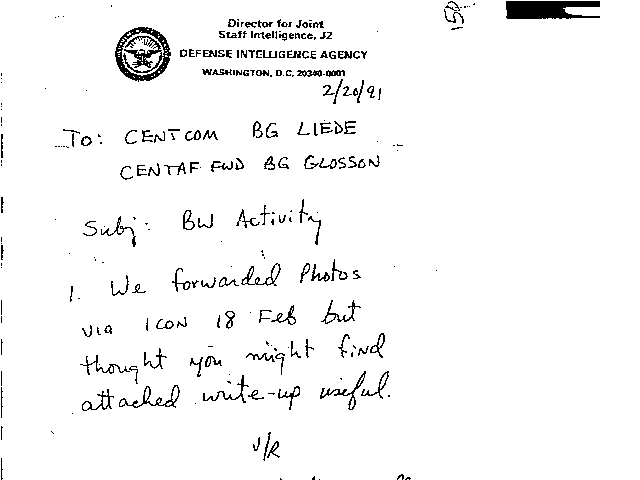 Director for Joint
Staff Intelligence, J2
DEFENSE INTELLIGENCE AGENCY
WASHINGTON, D.C. 20340-0001
2/20/91
To: CENTCOM BG LIEDE
CENTAF FWD BG GLOSSON
Subj: BW Activity
1. We forwarded Photos
via ICON 18 Feb but
thought you might find
attached write-up useful.
V/R